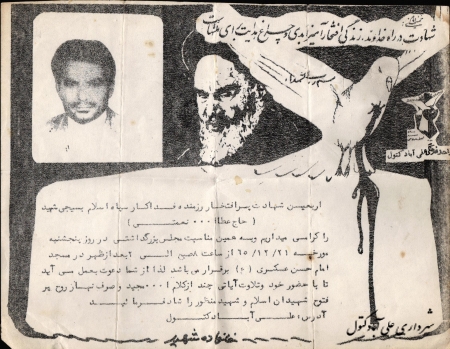 شهادت در راه خداوند، زندگی افتخار آمیز ابدی و چراغ هدایت برای ملتهاست
بسم رب الشهداء
علی آباد کتول
اربعین شهادت پرافتخار رزمنده فداکار سپاه اسلام بسیجی شهید
( حاج عطاا ۰۰۰ نعمتی )
را گرامی میداریم وبه همین مناسبت مجلس بزرگداشتی در روز پنجشنبه
مورخه ۶۵/۱۲/۲۱ از ساعت الی بعدازظهر در مسجد
امام حسن عسکری (ع) برقرار می باشد لذا از شما دعوت بعمل می آید
تا با حضور خود وتلاوت آیاتی چند ازکلام ا۰۰۰ مجید و صرف نهار روح پر
فتوح شهیدان اسلام و شهید منظور را شاد فرمائید
آدرس : علی آباد کتول
خانواده شهید
شهرداری علی آباد کتول